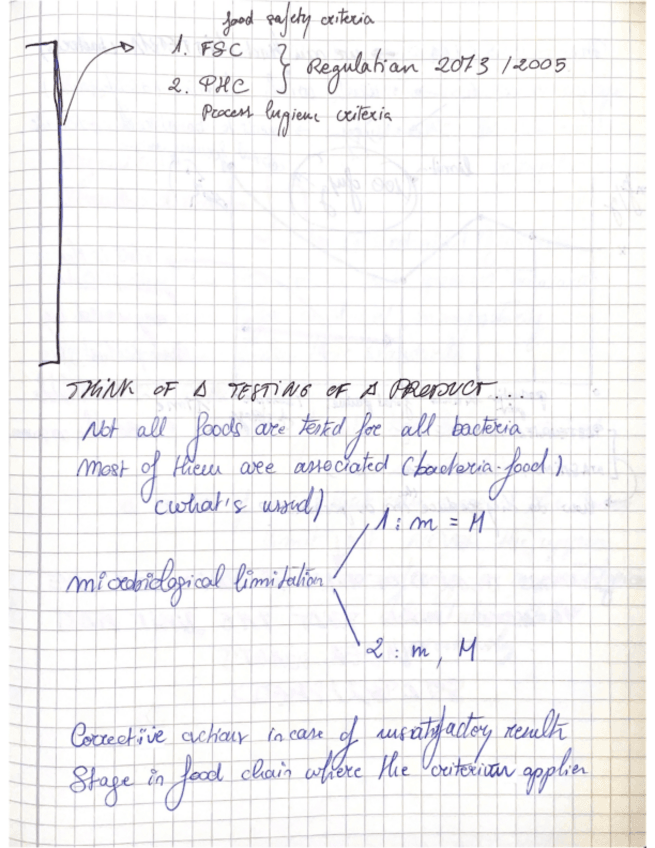 food safety criteria
1. FSC
2. PHC } Regulation 2073/2005
Process hygiene criteria
THINK OF A TESTING OF A PRODUCT...
Not all foods are tested for all bacteria
Most of them are associated (bacteria-food)
(what's usual)
1: m = M
microbiological limitation
2: m, M
Corrective actions in case of unsatisfactory result
Stage in food chain where the criterium applies